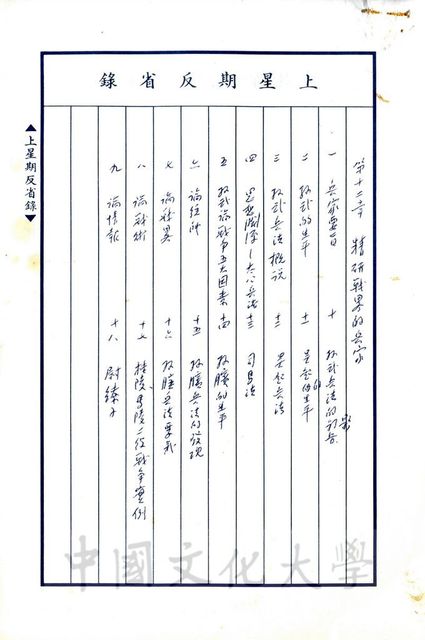 上星期反省錄
第十二章 精研戰畧的兵家
一 兵家要旨 十 孫武兵法的影
二 孫武的生平 十一 吳起的生平
三 孫武兵法概說 十二 吳起兵法
四 思想淵源—太公兵法 十三 司馬法
五 孫武論戰爭五大因素 十四 孫臏的生平
六 論 十五 孫臏兵法的發現
七 論 十六 孫臏兵法要義
八 論戰術 十七 桂陵、馬陵二役戰爭實例
九 論情報 十八 尉繚子
▲上星期反省錄▼
中國文化大學